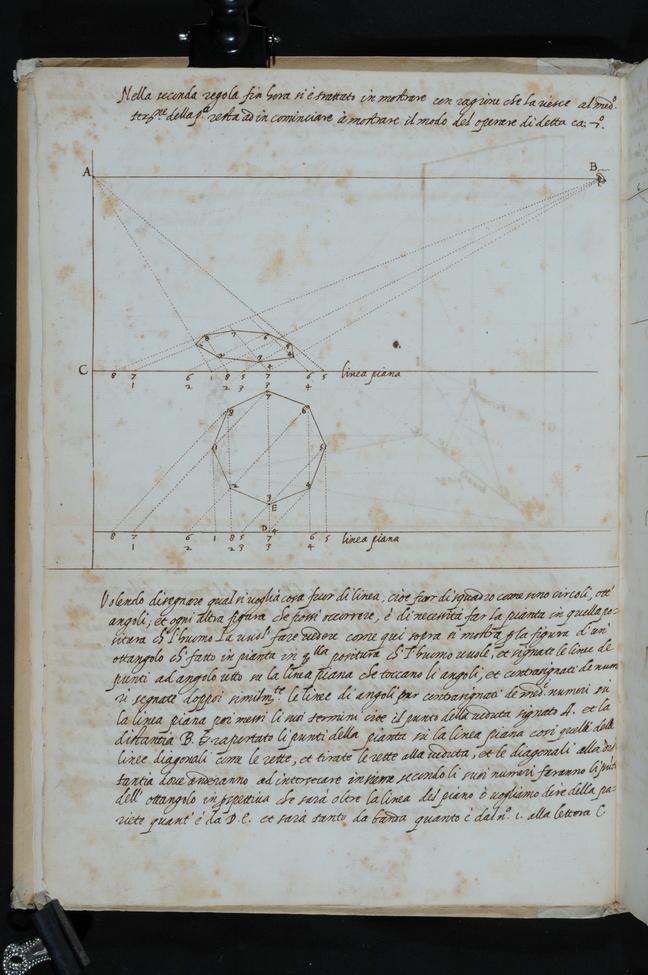 Nella seconda regola fin hora si è trattato in mostrare con ragione che la riesce al med.º
della p.ª resta ad in cominciare à mostrare il modo del operare di detta
A
B
8 7 6 5 4 3 2 1
C
8 7 6 1 8 5 7 6 5 linea piana
1 2 2 3 3 4
7
8 6
1 5
2 4
3
E
D 4
8 7 6 1 8 5 7 6 5 linea piana
1 2 2 3 3 4
Volendo disegnare qual si voglia cosa fuor di linea, cioè fuor di squadro come sono circoli, ott'
angoli; et ogni altra figura che possi occorrere, è di necessità far la pianta in quella po-
situra ch l'huomo la fare vedere come qui sopra si mostra la figura d'un'
ottangolo ch fatto in pianta in positura ch l'huomo vuole, et signate le linee de
punti ad angolo retto su la linea piana che toccano li angoli, et contrasignati de num
ri segnate doppoi le linee di angoli pur contrasignati de med. numeri su
la linea piana poi messi li suoi termini cioè il punto della veduta signato A. et la
distantia B. Et raportato li punti della pianta su la linea piana così quelli delle
linee diagonali come le rette, et tirate le rette alla veduta, et le diagonali alla dis
tantia dove anderanno ad intersecare insieme secondo li suoi numeri faranno li
dell' ottangolo in che sarà oltre la linea del piano ò vogliamo dire della pa-
riete quant' è da D.E. et sarà tanto da banda quanto è dal nº. 1. alla lettera C